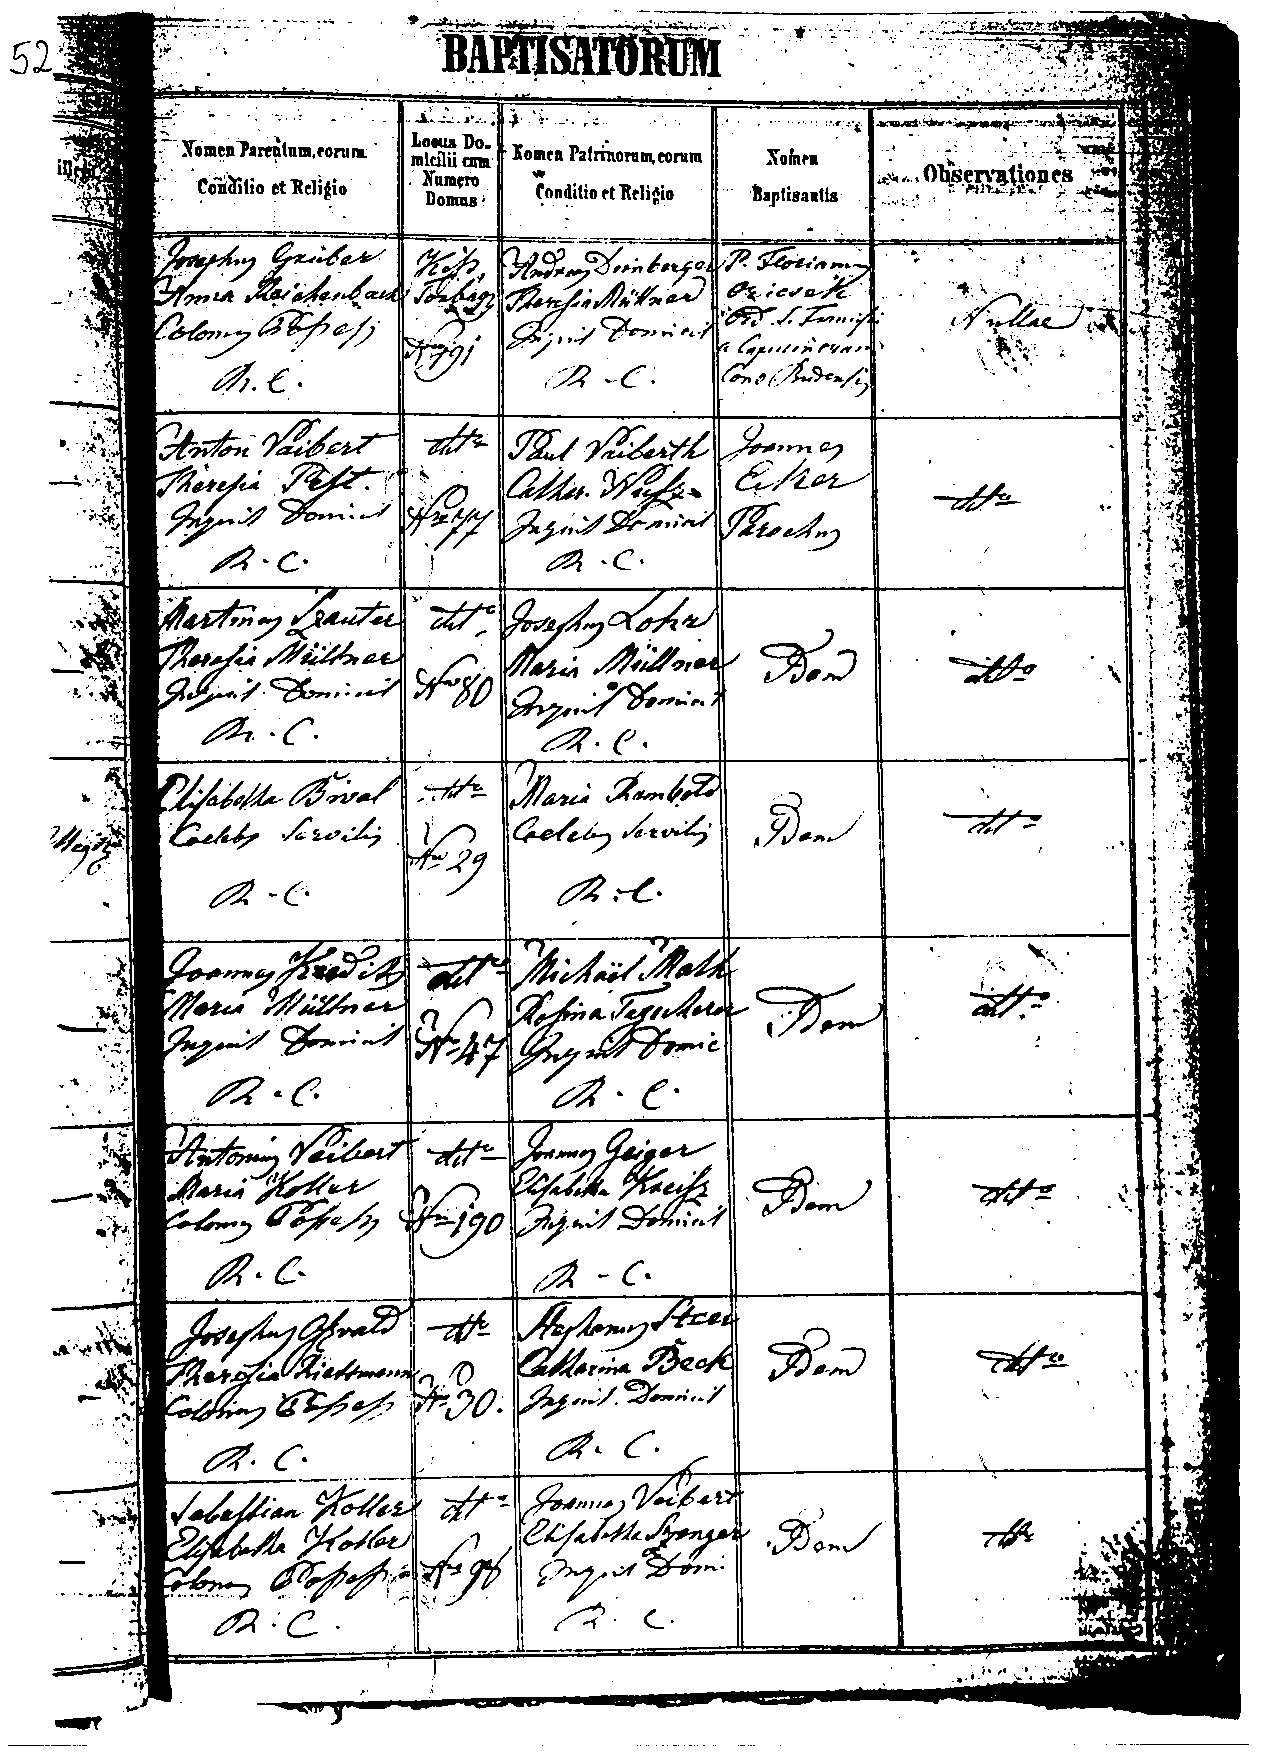 52
BAPTISATORUM
Nomen Parentum, eorum
Conditio et Religio
Locus Do-
micilii cum
Numero
Domus
Nomen Patrinorum, eorum
Conditio et Religio
Nomen
Baptisantis
Observationes
Josephus Gruber
Anna Reichenbach
Colonus
R. C.
Torbagy
Nro 91
Andreas Dernberger
Theresia Müllner
Inquil Domini
R - C.
P. Florianus
Ord. S.
a Capucinorum
Conv Budensis
Nullae
Anton Vaibert
Theresia Pest.
Inquil Domini
R. C.
ditto
Nro 77
Paul Vaiberth
Cathar.
Inquil Domini
R. C.
Joannes
Eiker
Parochus
ditto
Martinus Srauter
Theresia Müllner
Inquil Domini
R. C.
ditto
Nro 80
Josephus Lohr
Maria Müllner
Inquil Domini
R. C.
Idem
ditto
Elisabetha Bival
Caelebs Servilis
R - C.
ditto
Nro 29
Maria Rambold
Caelebs Servilis
R. C.
Idem
ditto
Joannes
Maria Müllner
Inquil Domini
R - C.
ditto
Nro 47
Michäel Math
Rosina
Inquil Domic
R. C.
Idem
ditto
Antonius Veibert
Maria Koller
Colonus
R. C.
ditto
Nro 190
Joannes Geiger
Elisabetha Kreisz
Inquil Domini
R - C.
Idem
ditto
Josephus Osvald
Theresia Riedtmann
Colonus
R. C.
ditto
Nro 30.
Stephanus Steer
Catharina Beck
Inquil. Domini
R. C.
Idem
ditto
Sebastian Koller
Elisabetha Koller
Colonus
R. C.
ditto
Nro 98
Joannes Veibert
Elisabetha Szenger
Inquil Domi
R. C.
Idem
ditto